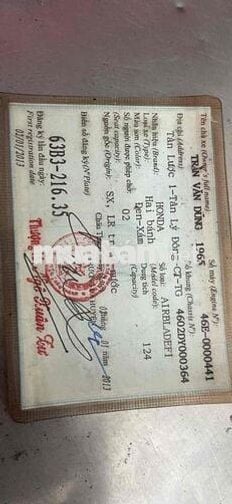 Tên chủ xe (Owner's full name):
TRẦN VĂN DŨNG 1965
Địa chỉ (Address)
Tân Lược 1-Tân Lý Đông-CT-TG
Nhãn hiệu (Brand): HONDA
Số máy (Engine N°): 46E-0000441
Số khung (Chassis N°): 4602DY000364
Loại xe (Type): Hai bánh
(Model code): AIRBLADEFI
Màu sơn (Color): Đen-Xám
Dung tích (Capacity): 124
Số người được phép chở
(Seat capacity): 02
Nguồn gốc (Origin): SX, LR trong nước
Biển số đăng ký (N° Plate)
63B3-216.35
Đăng ký lần đầu ngày:
(First registration date)
02/01/2013
01 2013